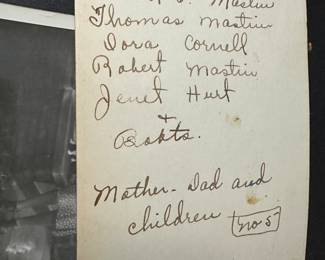 Mastin
Thomas Mastin
Dora Cornell
Robert Mastin
Jenet Hurt
+
Mother - Dad and
children no 5